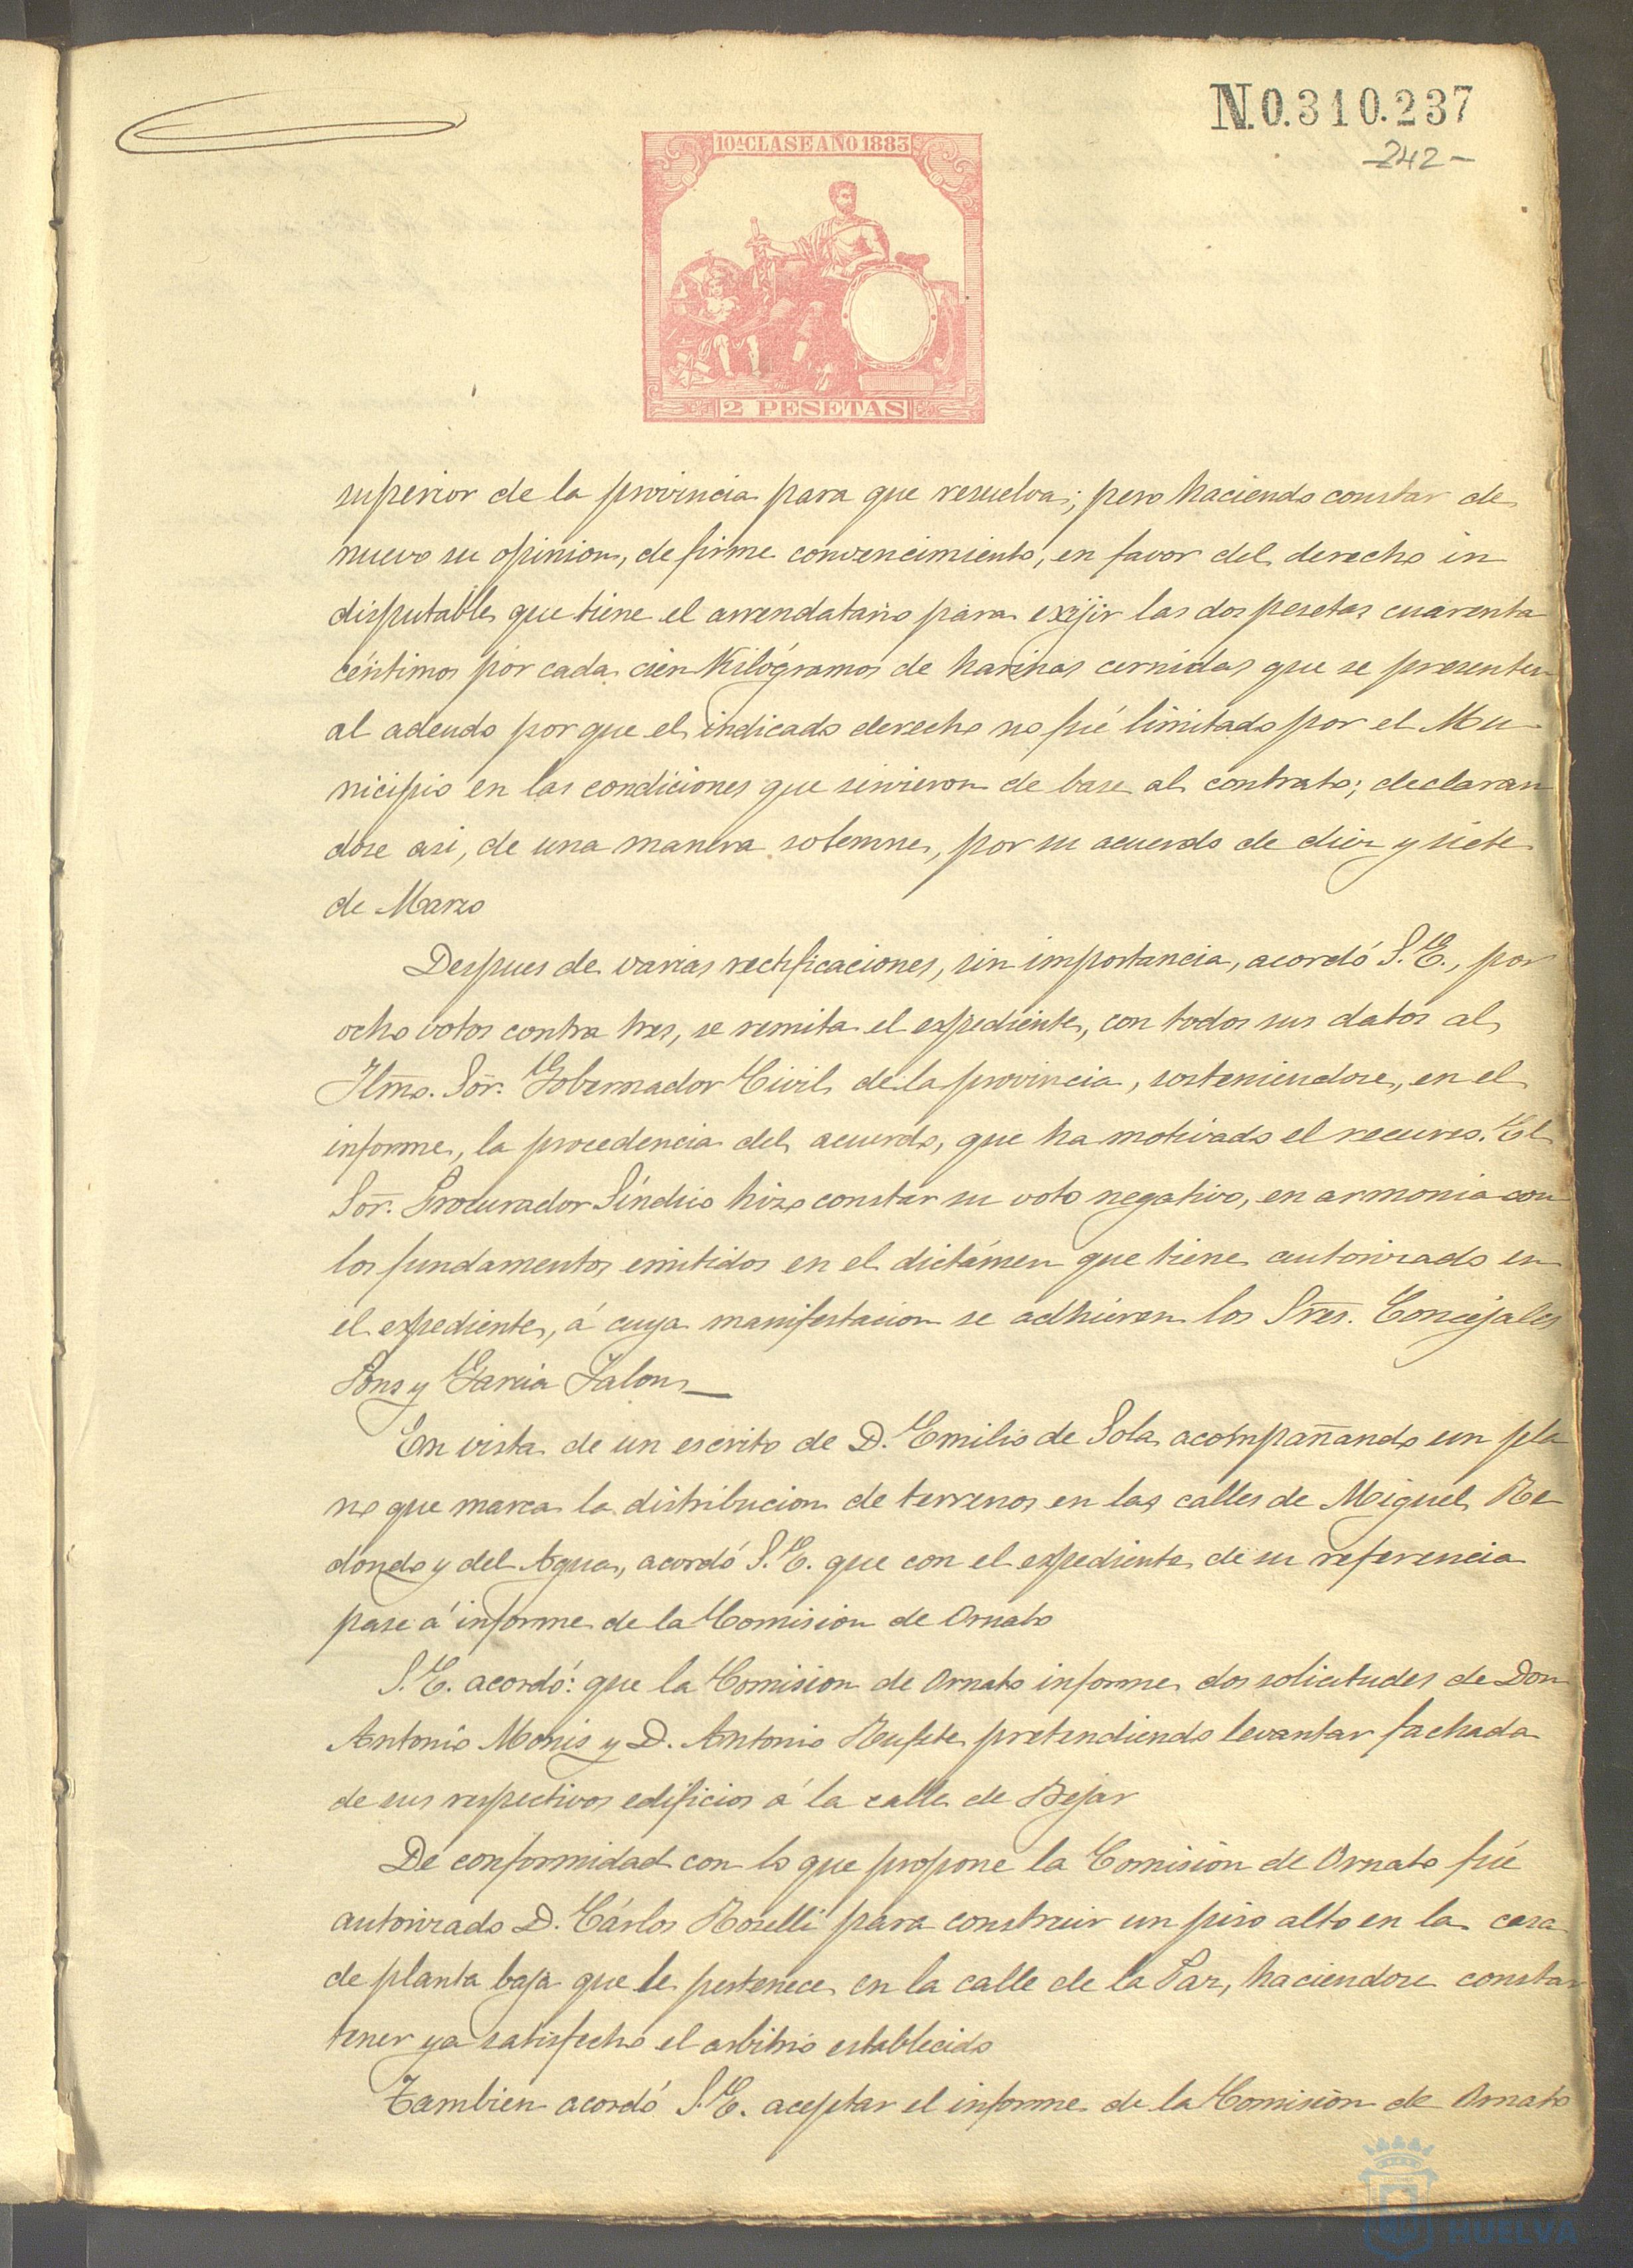 N.0.310.237
-242-
10ª CLASE AÑO 1883
2 PESETAS
superior de la provincia para que resuelva; pero haciendo constar de
nuevo su opinion, de firme convencimiento, en favor del derecho in
disputable que tiene el arrendatario para exijir las dos pesetas cuarenta
céntimos por cada cien Kilógramos de harinas cernidas que se presenten
al adeudo por que el indicado derecho no fué limitado por el Mu
nicipio en las condiciones que sirvieron de base al contrato; declaran
dose asi, de una manera solemne, por su acuerdo de diez y siete
de Marzo
Despues de varias rectificaciones, sin importancia, acordó S.E., por
ocho votos contra tres, se remita el expediente, con todos sus datos al
Iltmo. Sor. Gobernador Civil de la provincia, sosteniendose, en el
informe, la procedencia del acuerdo, que ha motivado el recurso. El
Sor. Procurador Síndico hizo constar su voto negativo, en armonia con
los fundamentos emitidos en el dictámen que tiene autorizado en
el expediente, á cuya manifestacion se adhieren los Sres. Concejales
Pons y Garcia Jalon
En vista de un escrito de D. Emilio de Sola acompañando un pla
no que marca la distribucion de terrenos en las calles de Miguel Re
dondo y del Agua, acordó S.E. que con el expediente de su referencia
pase á informe de la Comision de Ornato
S.E. acordó: que la Comision de Ornato informe dos solicitudes de Don
Antonio Monis y D. Antonio Rufete pretendiendo levantar fachada
de sus respectivos edificios á la calle de Bejar
De conformidad con lo que propone la Comision de Ornato fué
autorizado D. Cárlos Roselli para construir un piso alto en la casa
de planta baja que le pertenece en la calle de la Paz, haciendose constar
tener ya satisfecho el arbitrio establecido
Tambien acordó S.E. aceptar el informe de la Comision de Ornato
HUELVA